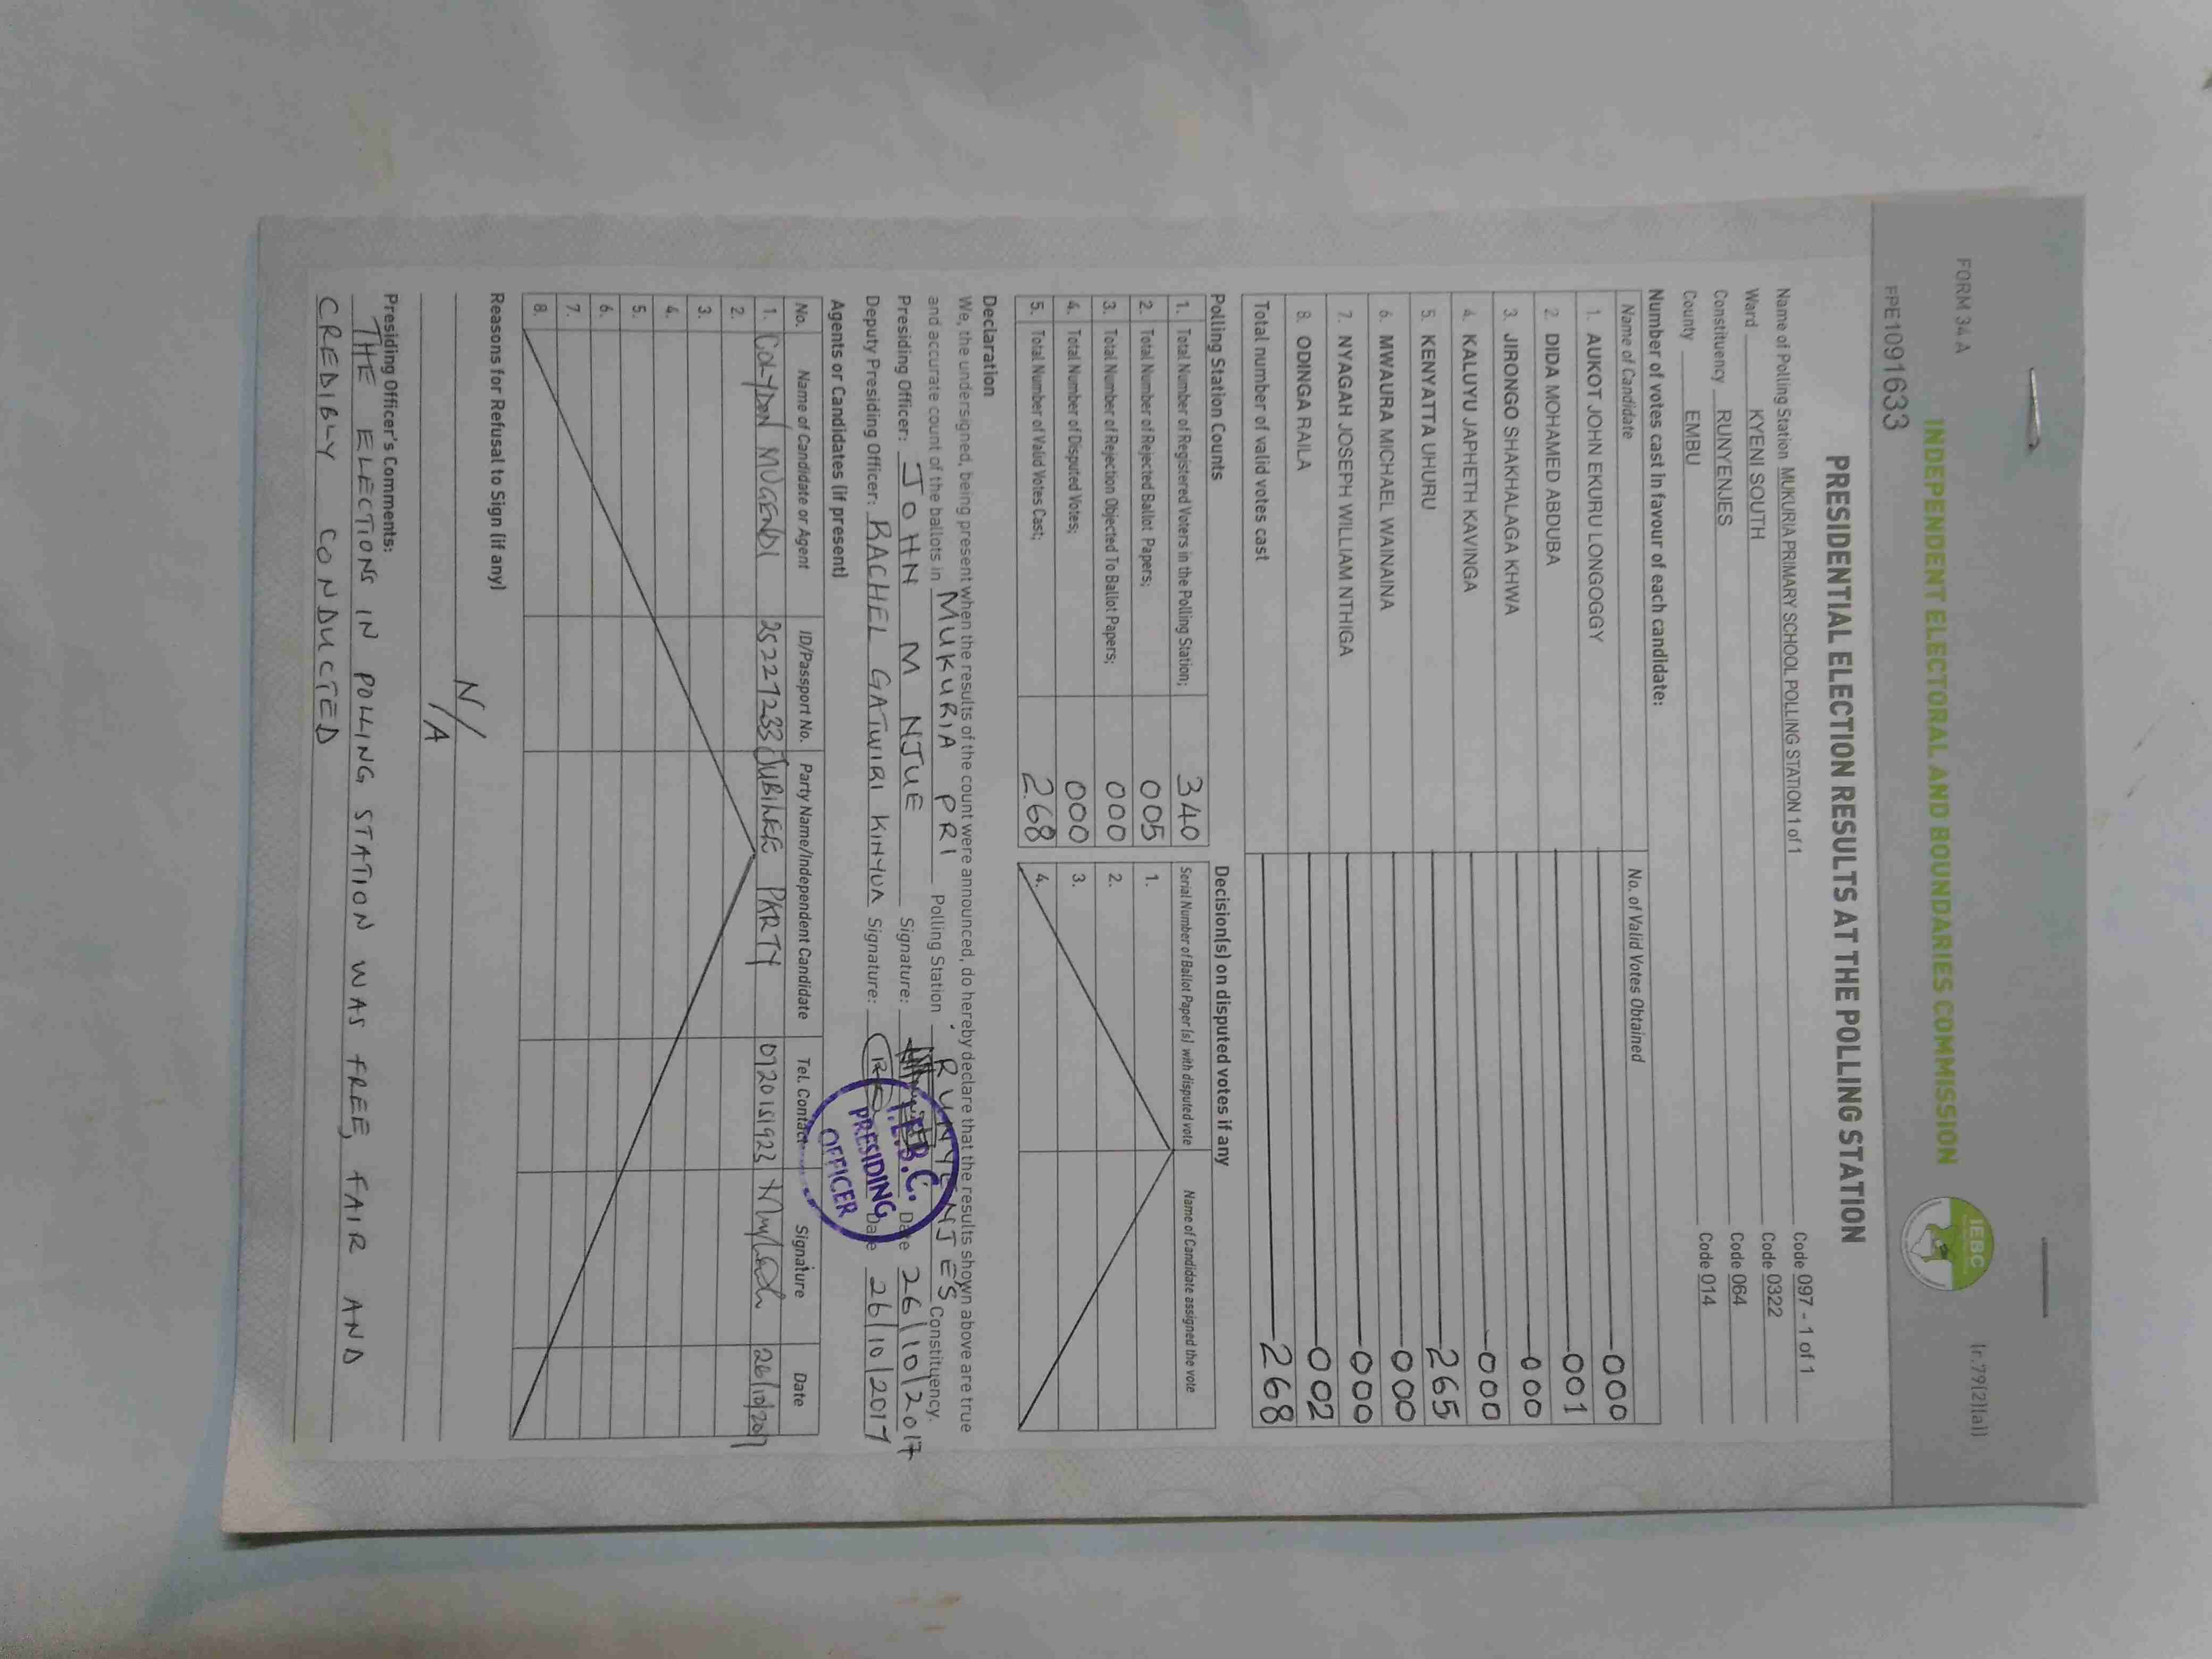 FORM 34 A
INDEPENDENT ELECTORAL AND BOUNDARIES COMMISSION
IEBC
(r.79(2)(a))
FPE1091633
PRESIDENTIAL ELECTION RESULTS AT THE POLLING STATION
Name of Polling Station MUKURIA PRIMARY SCHOOL POLLING STATION 1 of 1 Code 097 - 1 of 1
Ward KYENI SOUTH Code 0322
Constituency RUNYENJES Code 064
County EMBU Code 014
Number of votes cast in favour of each candidate:
Name of Candidate No. of Valid Votes Obtained
1. AUKOT JOHN EKURU LONGOGGY 000
2. DIDA MOHAMED ABDUBA 001
3. JIRONGO SHAKHALAGA KHWA 000
4. KALUYU JAPHETH KAVINGA 000
5. KENYATTA UHURU 265
6. MWAURA MICHAEL WAINAINA 000
7. NYAGAH JOSEPH WILLIAM NTHIGA 000
8. ODINGA RAILA 002
Total number of valid votes cast 268
Polling Station Counts Decision(s) on disputed votes if any
1. Total Number of Registered Voters in the Polling Station; 340 Serial Number of Ballot Paper (s) with disputed vote Name of Candidate assigned the vote
2. Total Number of Rejected Ballot Papers; 005 1.
3. Total Number of Rejection Objected To Ballot Papers; 000 2.
4. Total Number of Disputed Votes; 000 3.
5. Total Number of Valid Votes Cast; 268 4.
Declaration
We, the undersigned, being present when the results of the count were announced, do hereby declare that the results shown above are true
and accurate count of the ballots in MUKURIA PRI Polling Station RUNYENJES Constituency.
Presiding Officer: JOHN M NJUE Signature: Date 26/10/2017
Deputy Presiding Officer: RACHEL GATWIRI KINYUA Signature: Date 26/10/2017
I.E.B.C.
PRESIDING
OFFICER
Agents or Candidates (if present)
No. Name of Candidate or Agent ID/Passport No. Party Name/Independent Candidate Tel. Contact Signature Date
1. MUGENDI 25227233 JUBILEE PARTY 0720151923 26/10/2017
2.
3.
4.
5.
6.
7.
8.
Reasons for Refusal to Sign (if any)
N/A
Presiding Officer's Comments:
THE ELECTIONS IN POLLING STATION WAS FREE, FAIR AND
CREDIBLY CONDUCTED